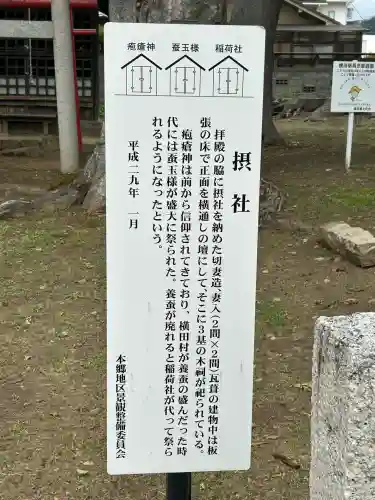 疱瘡神
蚕玉様
稲荷社
摂社
拝殿の脇に摂社を納めた切妻造、妻入(2間×2間)瓦葺の建物中は板
張の床で正面を横通しの壇にして、そこに3基の木祠が祀られている。
疱瘡神は前から信仰されてきており、横田村が養蚕の盛んだった時
代には蚕玉様が盛大に祭られた。養蚕が廃れると稲荷社が代って祭ら
れるようになったという。
平成二九年 一月
本郷地区景観整備委員会